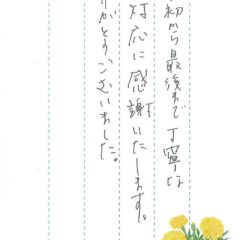 初から最後まで丁寧な
対応に感謝いたします。
りがとうございました。